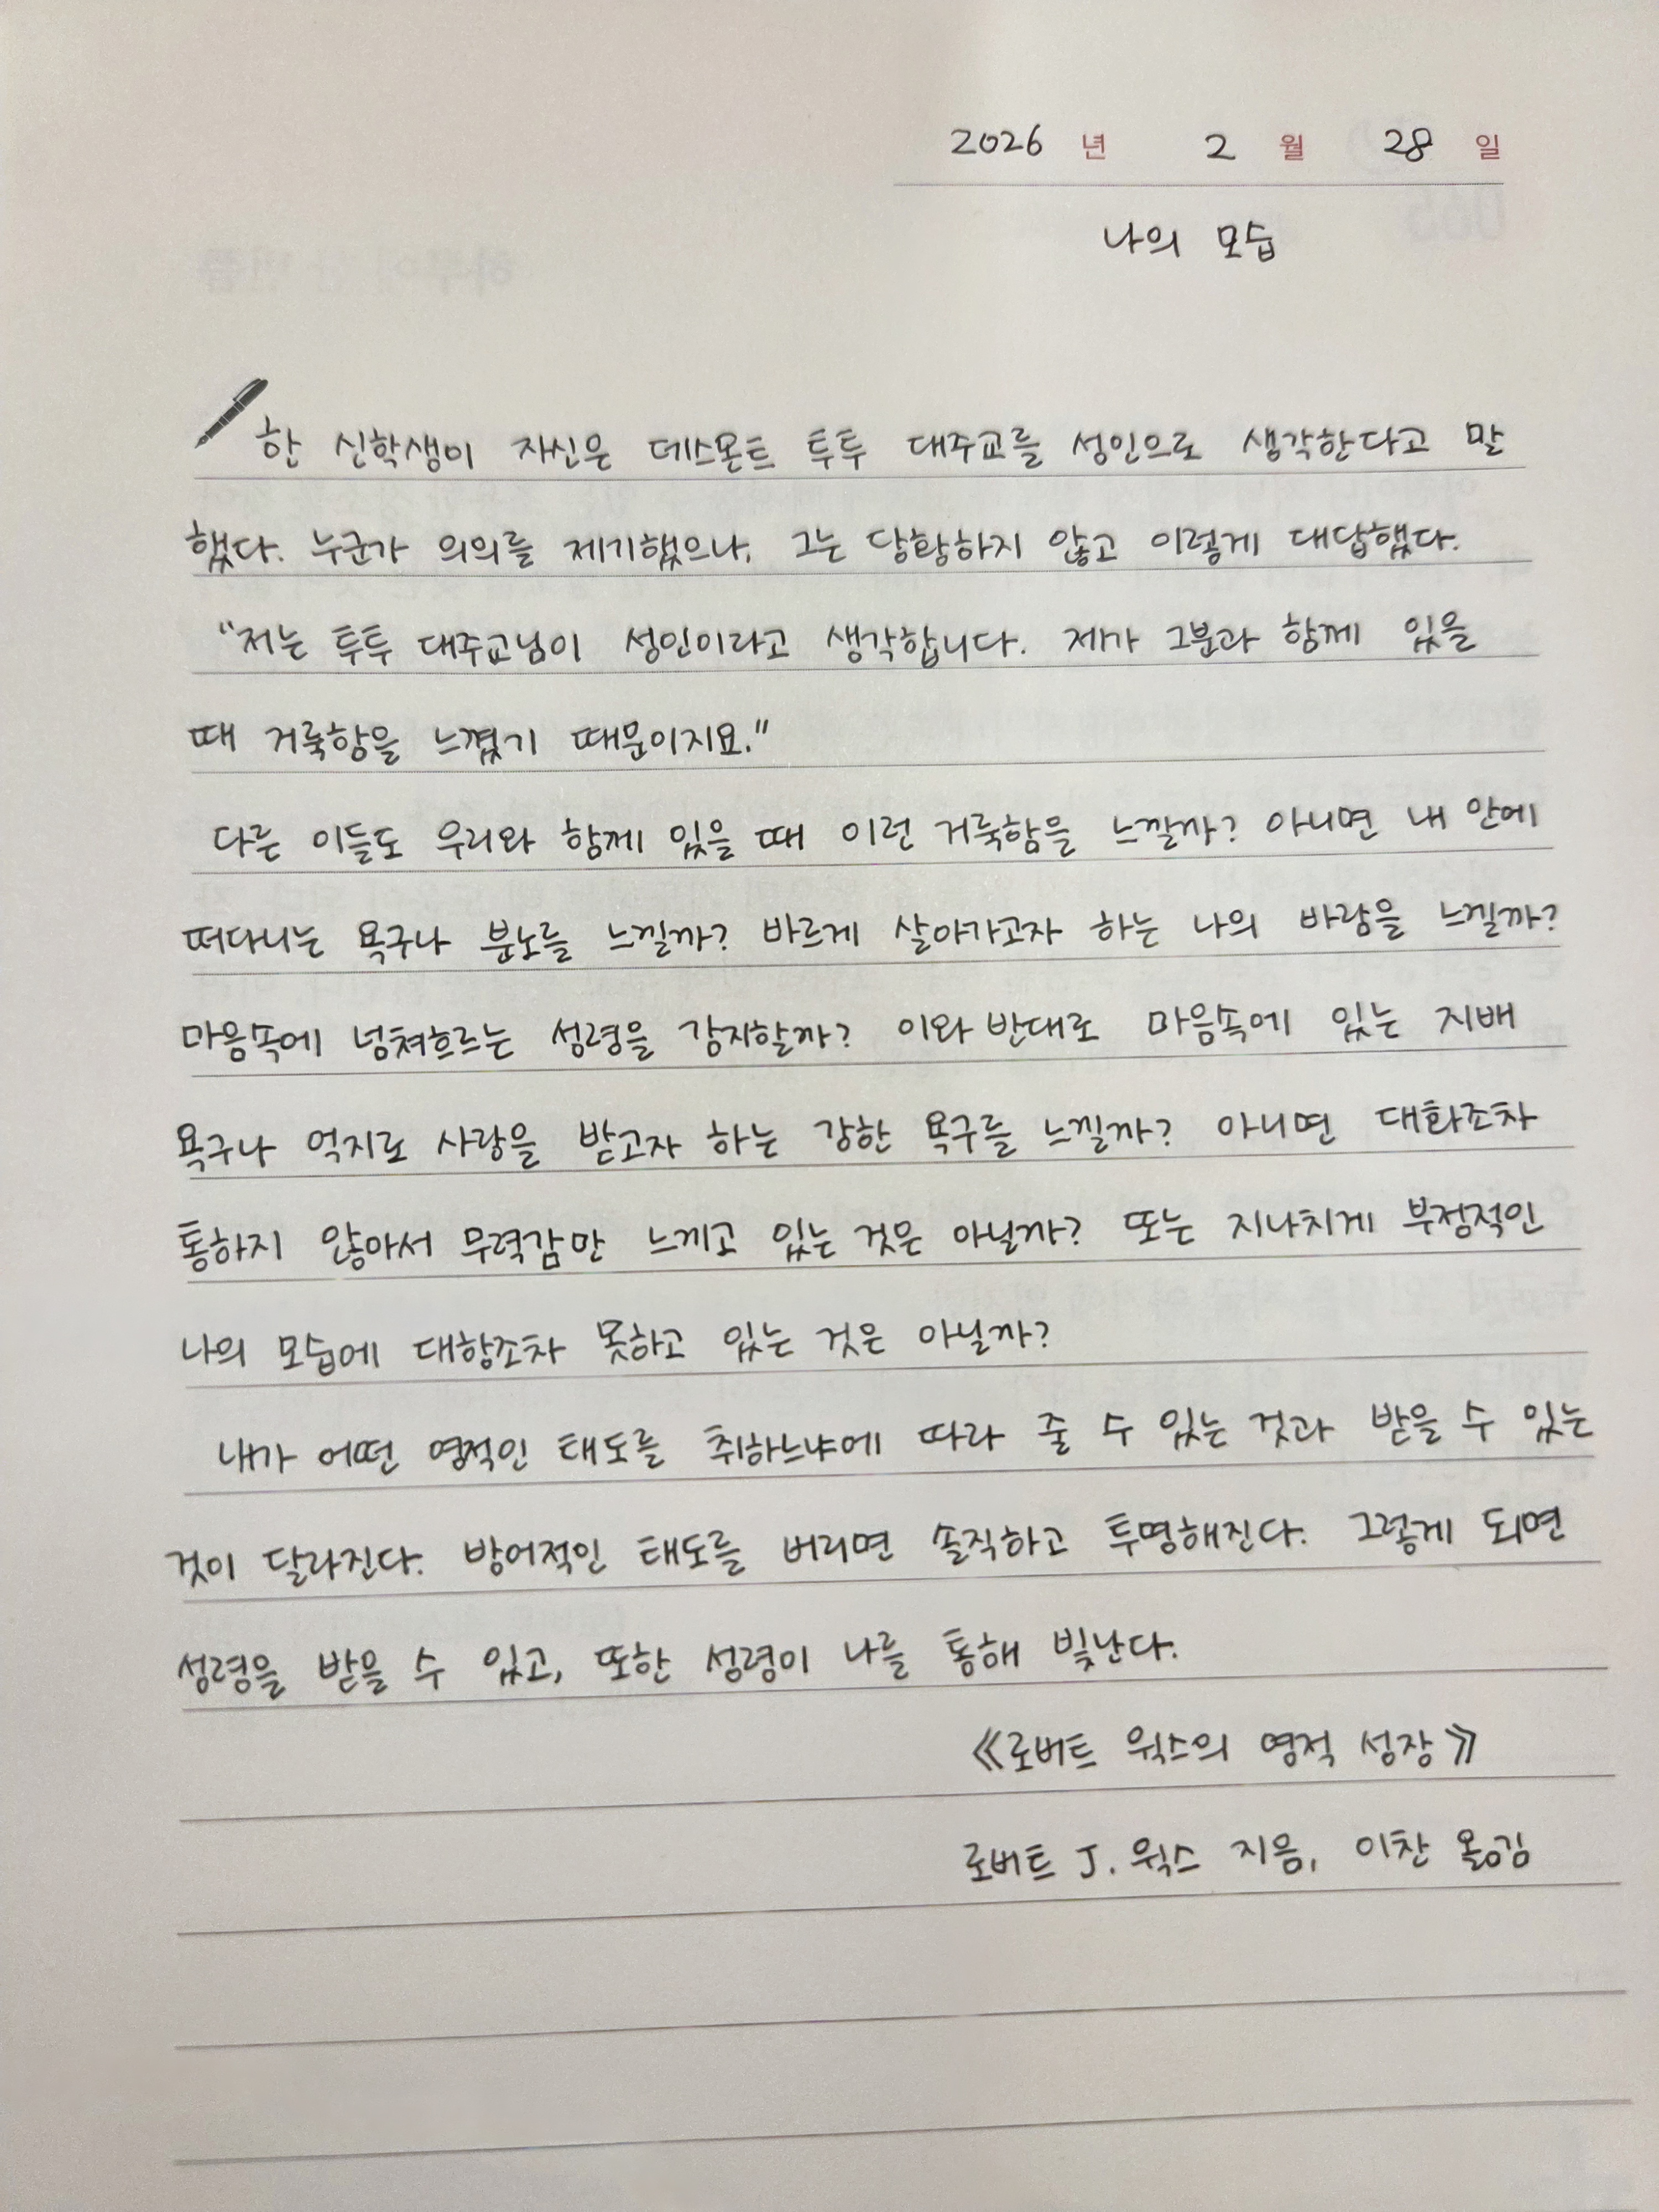 2026 년 2 월 28 일
나의 모습
한 신학생이 자신은 데스몬트 투투 대주교를 성인으로 생각한다고 말
했다. 누군가 의의를 제기했으나, 그는 당황하지 않고 이렇게 대답했다.
“저는 투투 대주교님이 성인이라고 생각합니다. 제가 그분과 함께 있을
때 거룩함을 느꼈기 때문이지요.”
다른 이들도 우리와 함께 있을 때 이런 거룩함을 느낄까? 아니면 내 안에
떠다니는 욕구나 분노를 느낄까? 바르게 살아가고자 하는 나의 바람을 느낄까?
마음속에 넘쳐흐르는 성령을 감지할까? 이와 반대로 마음속에 있는 지배
욕구나 억지로 사랑을 받고자 하는 강한 욕구를 느낄까? 아니면 대화조차
통하지 않아서 무력감만 느끼고 있는 것은 아닐까? 또는 지나치게 부정적인
나의 모습에 대항조차 못하고 있는 것은 아닐까?
내가 어떤 영적인 태도를 취하느냐에 따라 줄 수 있는 것과 받을 수 있는
것이 달라진다. 방어적인 태도를 버리면 솔직하고 투명해진다. 그렇게 되면
성령을 받을 수 있고, 또한 성령이 나를 통해 빛난다.
《로버트 윅스의 영적 성장》
로버트 J. 윅스 지음, 이찬 옮김